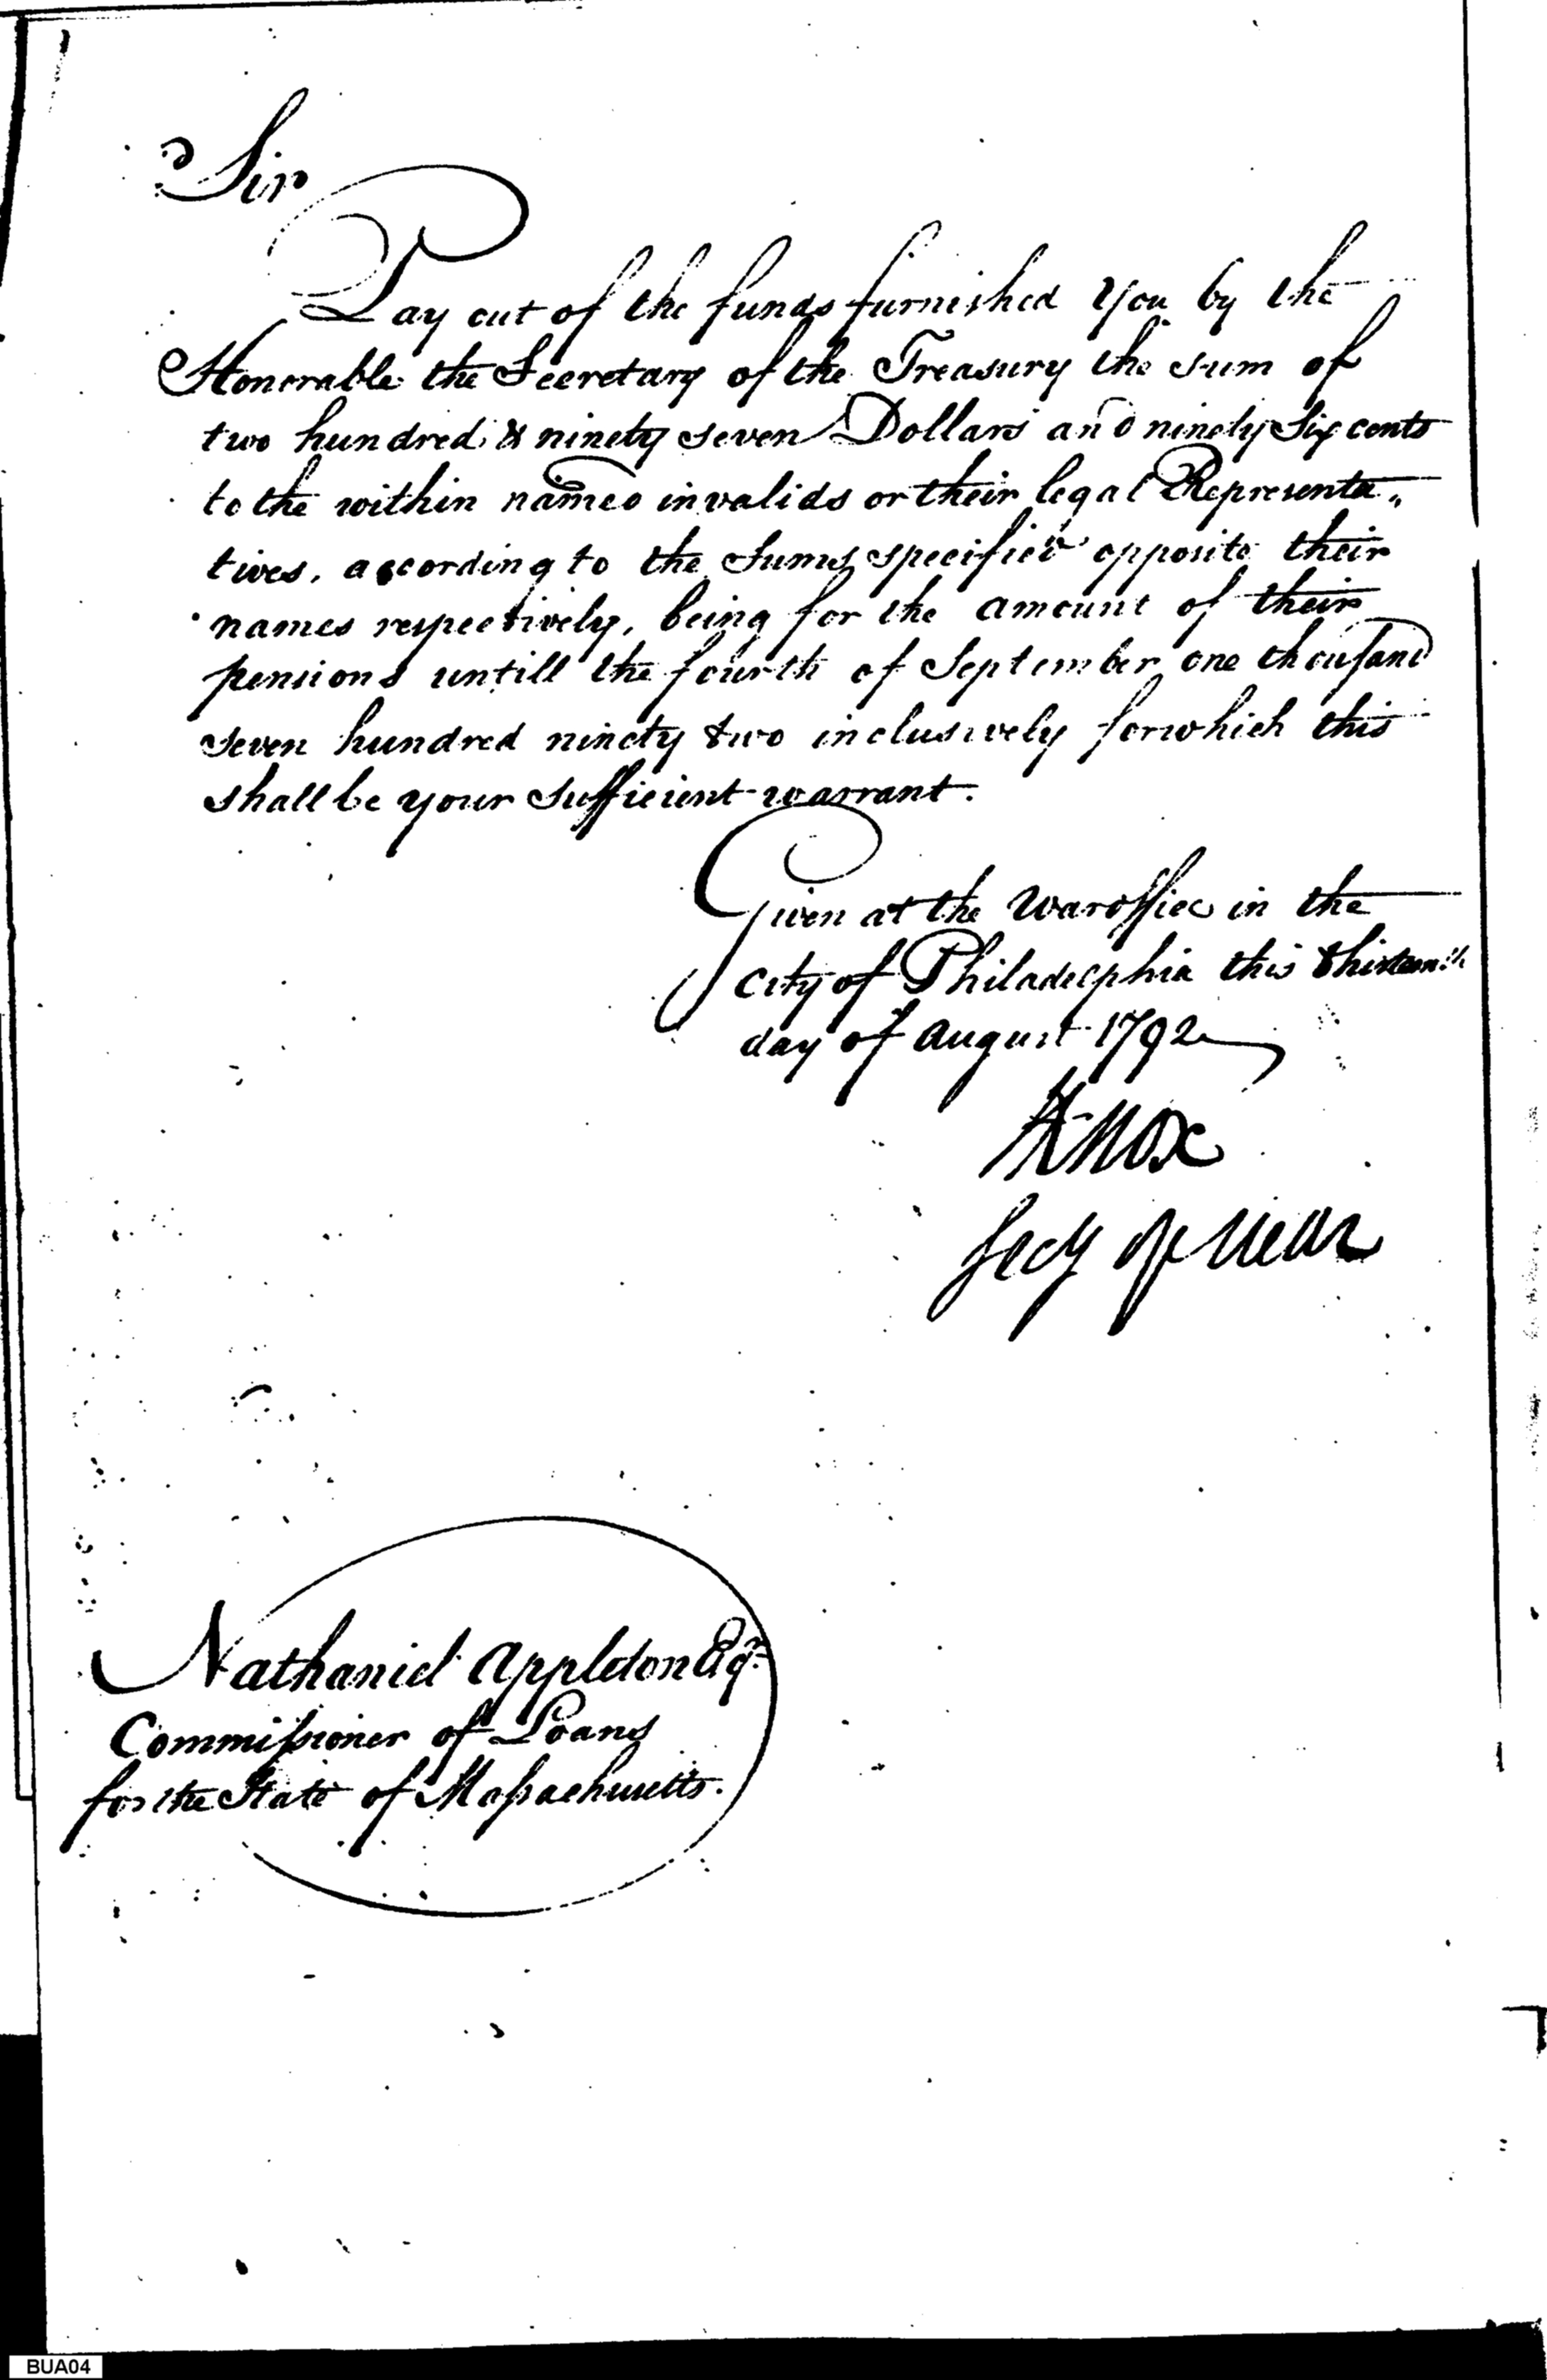 Sir
Pay out of the funds furnished You by the
Honorable the Secretary of the Treasury the sum of
two hundred & ninety seven Dollars and ninety Six cents
to the within named invalids or their legal Representa„
tives, according to the Sums specified opposite their
names respectively, being for the amount of their
pensions untill the fourth of September one thousand
seven hundred ninety two inclusively for which this
shall be your Sufficient warrant.
Given at the War office in the
City of Philadelphia this thirteenth
day of August 1792
HKnox
Secy of War
Nathaniel Appleton Esqr.
Commissioner of Loans
for the State of Massachusetts.
BUA04